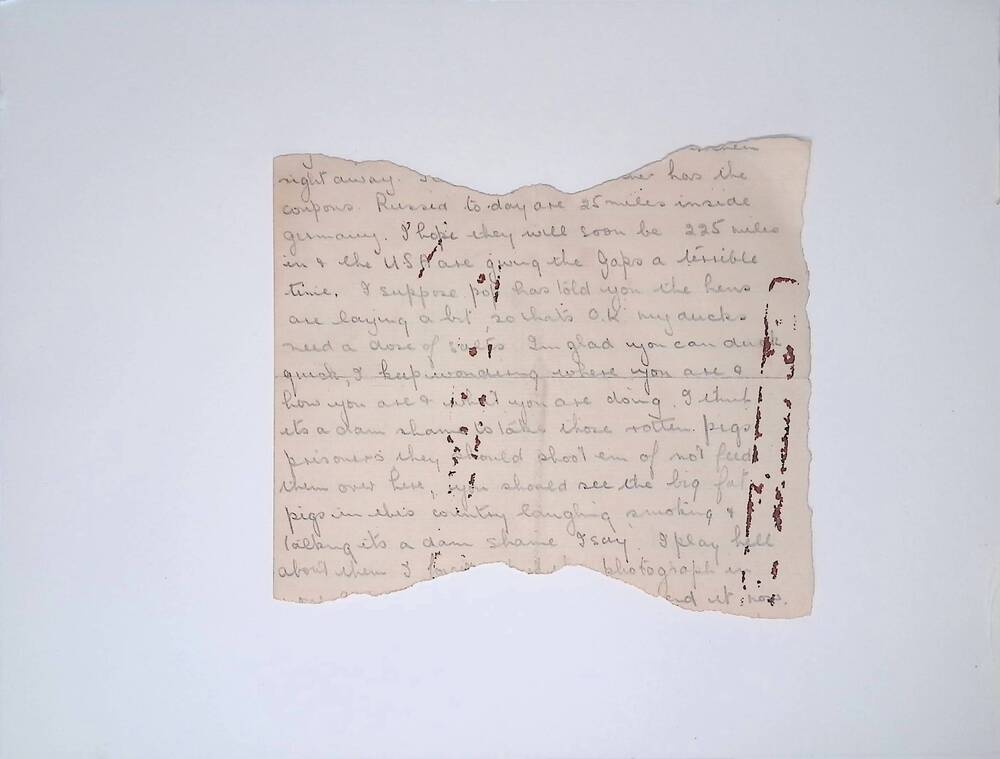 right away. has the
coupons. Russia to day are 25 miles inside
germany. I hope they will soon be 225 miles
in & the USA are giving the Japs a terrible
time. I suppose pop has told you the hens
are laying a bit, so thats O.K my ducks
need a dose of salts. Im glad you can duck
quick, I keep wondering where you are &
how you are & what you are doing. I think
its a dam shame to take those rotten pigs
prisoners they should shoot em of not feed
them over here, you should see the big fat
pigs in this country laughing smoking &
talking its a dam shame I say. I play hell
about them I photograph in
and it now.